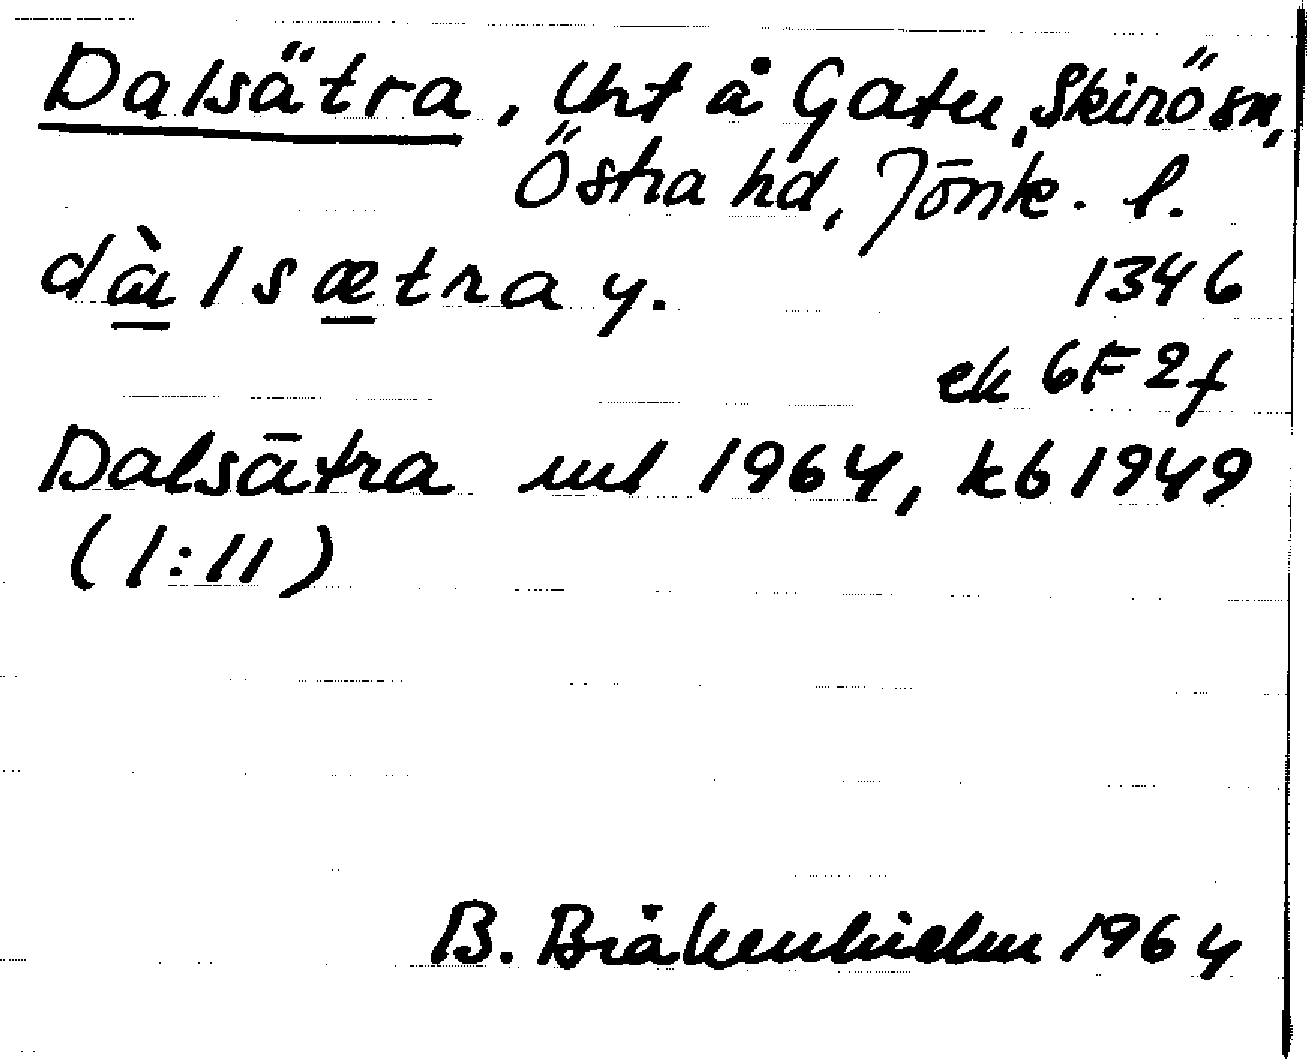 Dalsätra, lht å Gatu, Skirö sn,
Östra hd, Jönk. l.
dàlsætra y. 1346
ek 6F2f
Dalsätra uul 1964, kb 1949
(1:11)
B. Bråkenhielm 1964